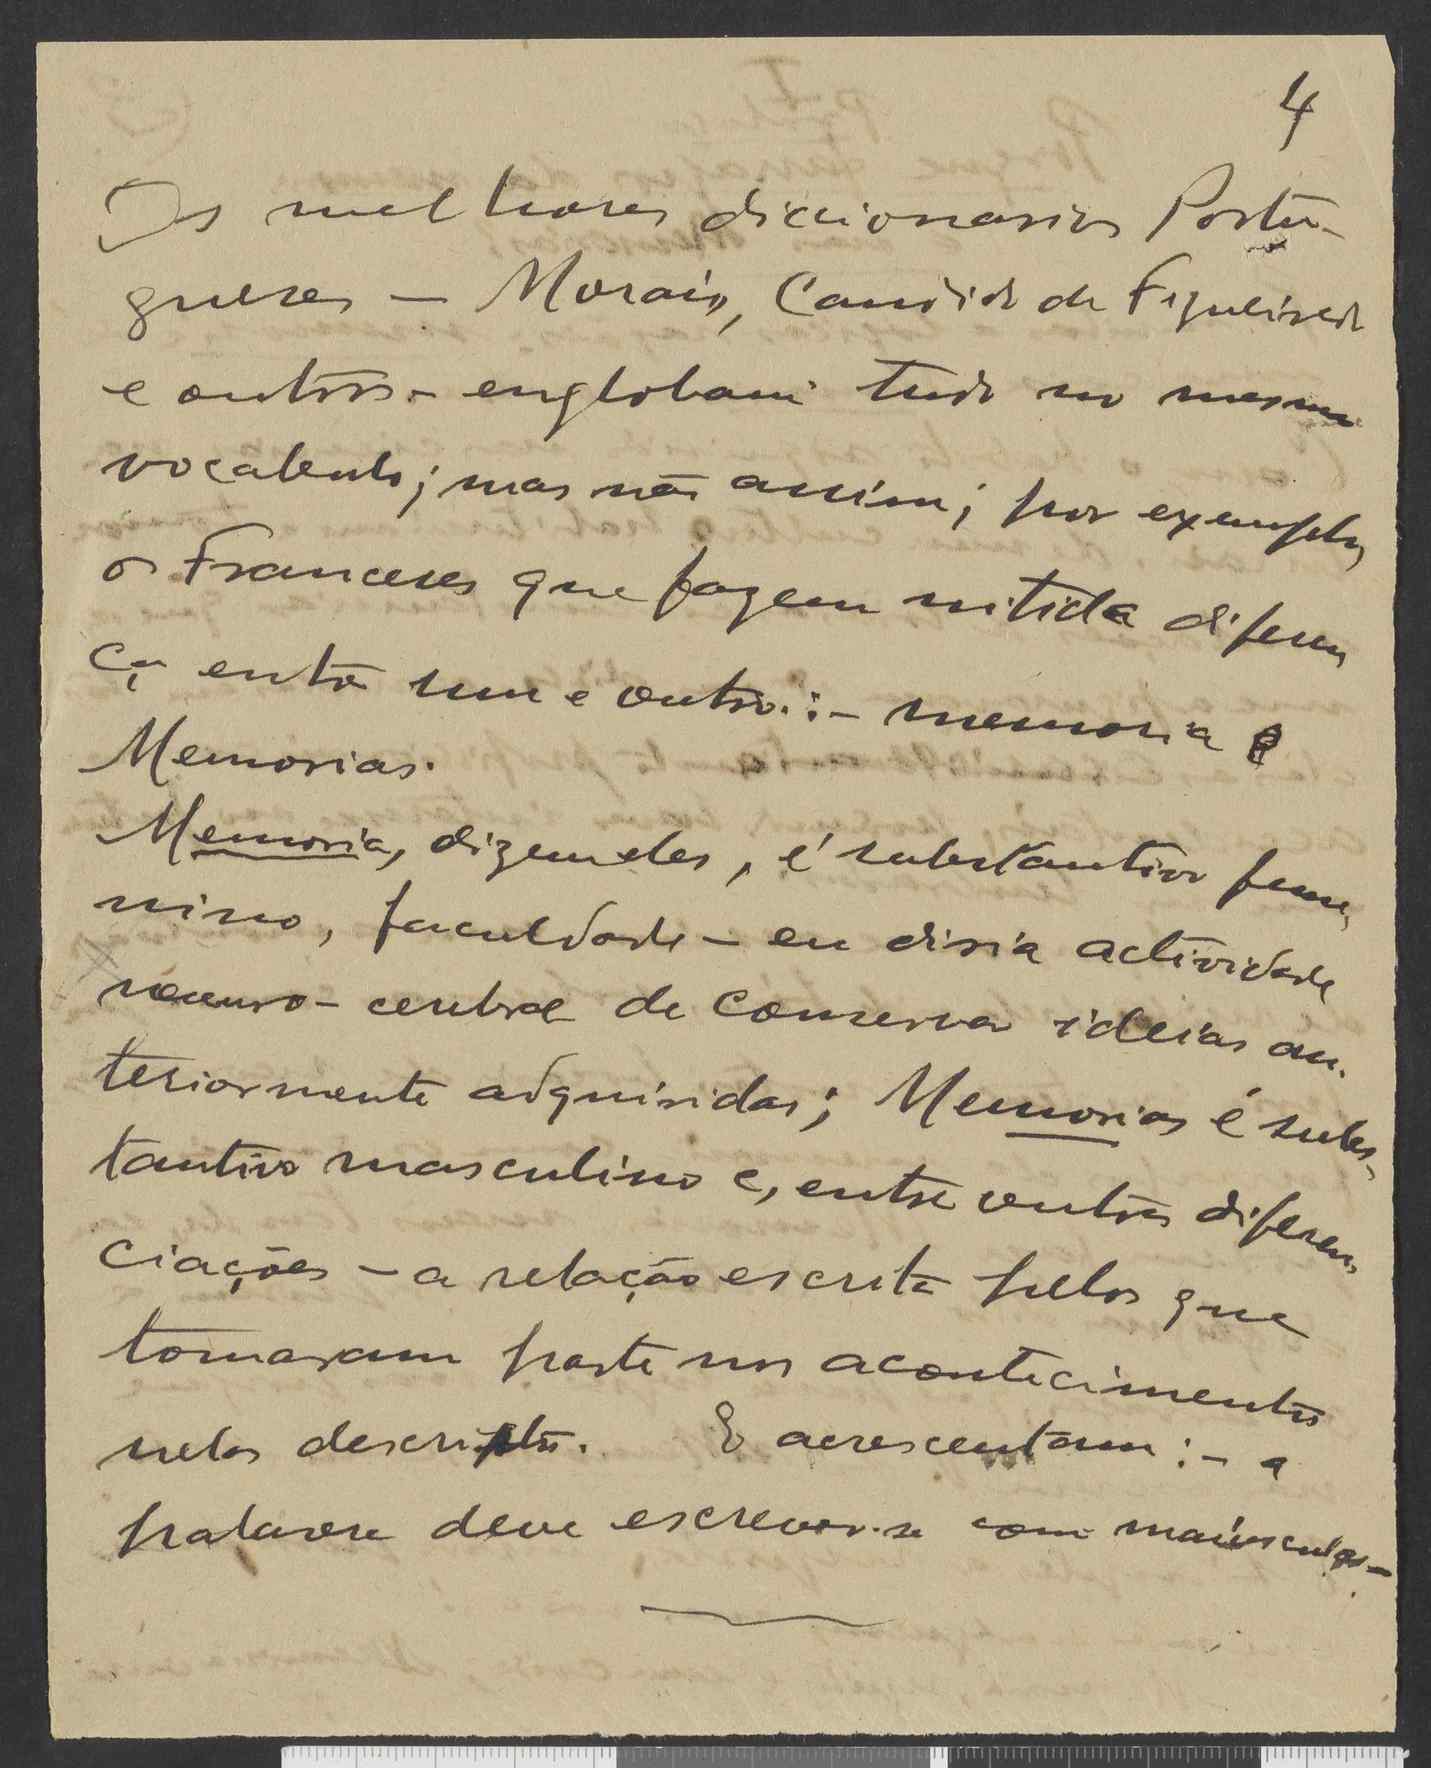 4
Os melhores diccionarios Portu-
gueses — Morais, Candido de Figueiredo
e outros - englobam tudo no mesmo
vocabulo; mas não assim; por exemplo,
os Franceses que fazem nitida diferen
ça entre um e outro: - memoria e
Memorias.
Memoria, dizem eles, é substantivo feme,
nino, faculdade - eu diria actividade
neuro - cerebral de conservar ideias an-
teriormente adquiridas; Memorias é subs-
tantivo masculino e, entre outras diferen,
ciações - a relação escrita pelos que
tomaram parte nos acontecimentos
nelas descritos. E acrescentam: - a
palavra deve escrever-se com maiusculas -